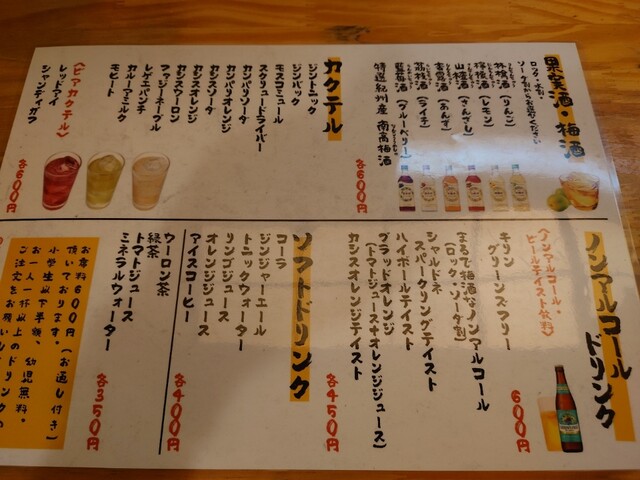 果実酒・梅酒
ロック・水割・
ソーダ割からお選びください
林檎酒(りんご)
檸檬酒(レモン)
山楂酒(さんざし)
杏露酒(あんず)
茘枝酒(ライチ)
藍苺酒(ブルーベリー)
特選紀州産 南高梅酒
各600円
カクテル
ジントニック
ジンバック
モスコミュール
スクリュードライバー
カンパリソーダ
カンパリオレンジ
カシスソーダ
カシスオレンジ
カシスウーロン
ファジーネーブル
レゲエパンチ
カルーアミルク
モヒート
〈ビアカクテル〉
レッドアイ
シャンディガフ
各600円
ノンアルコールドリンク
〈ノンアルコール・
ビールテイスト飲料〉
キリン
グリーンズフリー
600円
まるで梅酒なノンアルコール
(ロック・ソーダ割)
シャルドネ
スパークリングテイスト
ハイボールテイスト
ブラッドオレンジ
(トマトジュース+オレンジジュース)
カシスオレンジテイスト
各450円
ソフトドリンク
コーラ
ジンジャーエール
トニックウォーター
リンゴジュース
オレンジジュース
アイスコーヒー
各400円
ウーロン茶
緑茶
トマトジュース
ミネラルウォーター
各350円
お席料600円(お通し付き)
頂いております。
小学生以下半額、幼児無料。
お一人一杯以上のドリンクの
ご注文をお願い